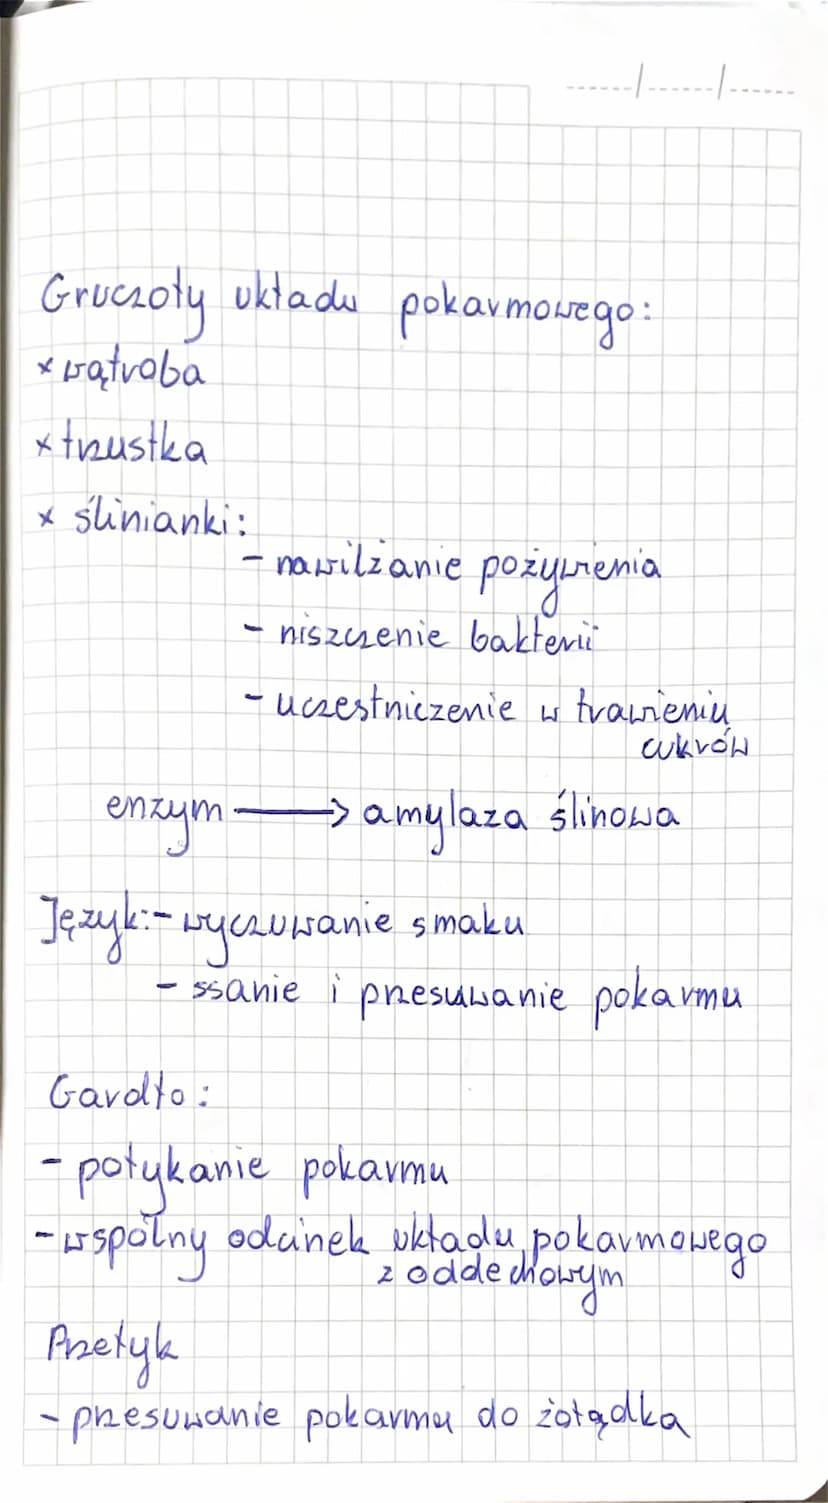 Gruczoły układu pokarmowego:
x wątroba
x trzustka
x ślinianki:
- nawilżanie pożywienia
- niszczenie bakterii
- uczestniczenie w trawieniu
cukrów
enzym → amylaza ślinowa
Język: - wyczuwanie smaku
- ssanie i przesuwanie pokarmu
Gardło:
- połykanie pokarmu
- wspólny odcinek układu pokarmowego
z oddechowym
Przełyk
- przesuwanie pokarmu do żołądka